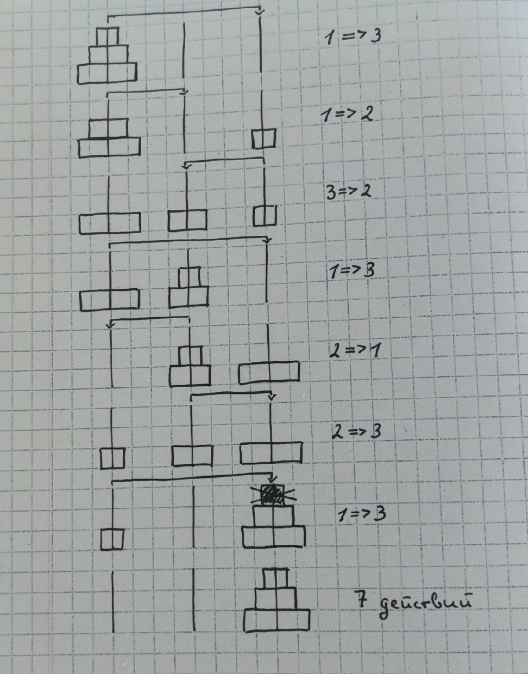 1=>3
1=>2
3=>2
1=>3
2=>1
2=>3
1=>3
7 действий